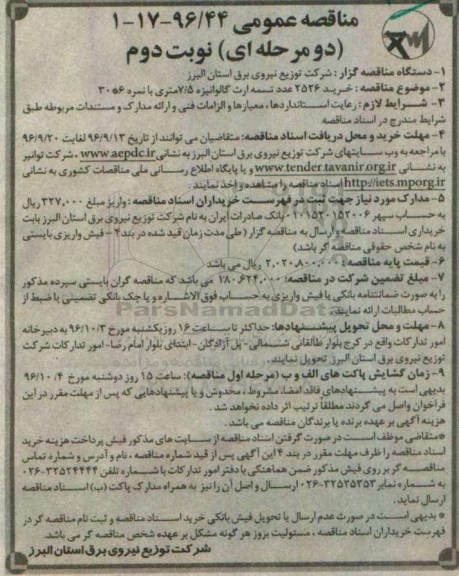 مناقصه عمومی ۹۶/۴۴-۱۷-۱
(دو مرحله ای) نوبت دوم
۱- دستگاه مناقصه گزار : شرکت توزیع نیروی برق استان البرز
۲- موضوع مناقصه : خرید ۲۵۲۶ عدد تسمه ارت گالوانیزه ۷/۵متری با نمره ۶*۳۰
۳- شرایط لازم : رعایت استانداردها، معیارها و الزامات فنی و ارائه مدارک و مستندات مربوطه طبق
شرایط مندرج در اسناد مناقصه
۴- مهلت خرید و محل دریافت اسناد مناقصه: متقاضیان می توانند از تاریخ ۹۶/۹/۱۳ لغایت ۹۶/۹/۲۰
با مراجعه به وب سایتهای شرکت توزیع نیروی برق استان البرز به نشانی www.aepdc.ir ، شرکت توانیر
به نشانی www.tender.tavanir.org.ir و یا پایگاه اطلاع رسانی ملی مناقصات کشوری به نشانی
http://iets.mporg.ir اسناد مناقصه را مشاهده و اخذ نمایند .
۵- مدارک مورد نیاز جهت ثبت در فهرست خریداران اسناد مناقصه : واریز مبلغ ۳۲۷،۰۰۰ ریال
به حساب سپهر ۰۱۰۱۵۳۰۱۵۲۰۰۶ بانک صادرات ایران به نام شرکت توزیع نیروی برق استان البرز بابت
خریداری اسناد مناقصه و ارسال به مناقصه گزار ( طی مدت زمان قید شده در بند ۴ - فیش واریزی بایستی
به نام شخص حقوقی مناقصه گر باشد)
۶- قیمت پایه مناقصه: ۲،۰۲۰،۸۰۰،۰۰۰ ریال می باشد
۷- مبلغ تضمین شرکت در مناقصه: ۱۸۰،۶۲۴،۰۰۰ می باشد که مناقصه گران بایستی سپرده مذکور
را به صورت ضمانتنامه بانکی یا فیش واریزی به حساب فوق الاشاره و یا چک بانکی تضمینی یا ضبط از
حساب مطالبات ارائه نمایند.
ParsNamadData
۸- مهلت و محل تحویل پیشنهادها: حداکثر تا ساعت ۱۶ روز یکشنبه مورخ ۹۶/۱۰/۳ به دبیرخانه
امور تدارکات واقع در کرج بلوار طالقانی شمالی- پل آزادگان - ابتدای بلوار امام رضا- امور تدارکات شرکت
توزیع نیروی برق استان البرز تحویل نمایند.
۹- زمان گشایش پاکت های الف و ب (مرحله اول مناقصه): ساعت ۱۵ روز دوشنبه مورخ ۹۶/۱۰/۴
بدیهی است به پیشنهادهای فاقد امضا، مشروط، مخدوش و یا پیشنهادهایی که پس از مهلت مقرر در این
فراخوان واصل می گردند مطلقاً ترتیب اثر داده نخواهد شد.
هزینه آگهی بر عهده برنده یا برندگان مناقصه می باشد .
*متقاضی موظف است در صورت گرفتن اسناد مناقصه از سایت های مذکور فیش پرداخت هزینه خرید
اسناد مناقصه را ظرف مهلت مقرر در بند ۴ این آگهی پس از قید شماره مناقصه ، نام و آدرس و شماره تماس
مناقصه گر بر روی فیش مذکور ضمن هماهنگی با دفتر امور تدارکات با شماره تلفن ۳۲۵۲۴۴۴۴-۰۲۶
به شماره نمابر ۳۲۵۳۵۳۵۳-۰۲۶ ارسال و اصل آن را نیز به همراه مدارک پاکت (ب) اسناد مناقصه
ارسال نماید.
* بدیهی است در صورت عدم ارسال یا تحویل فیش بانکی خرید اسناد مناقصه و ثبت نام مناقصه گر در
فهرست خریداران اسناد مناقصه ، مسئولیت بروز هر گونه مشکل بر عهده شخص مناقصه گر می باشد.
شرکت توزیع نیروی برق استان البرز